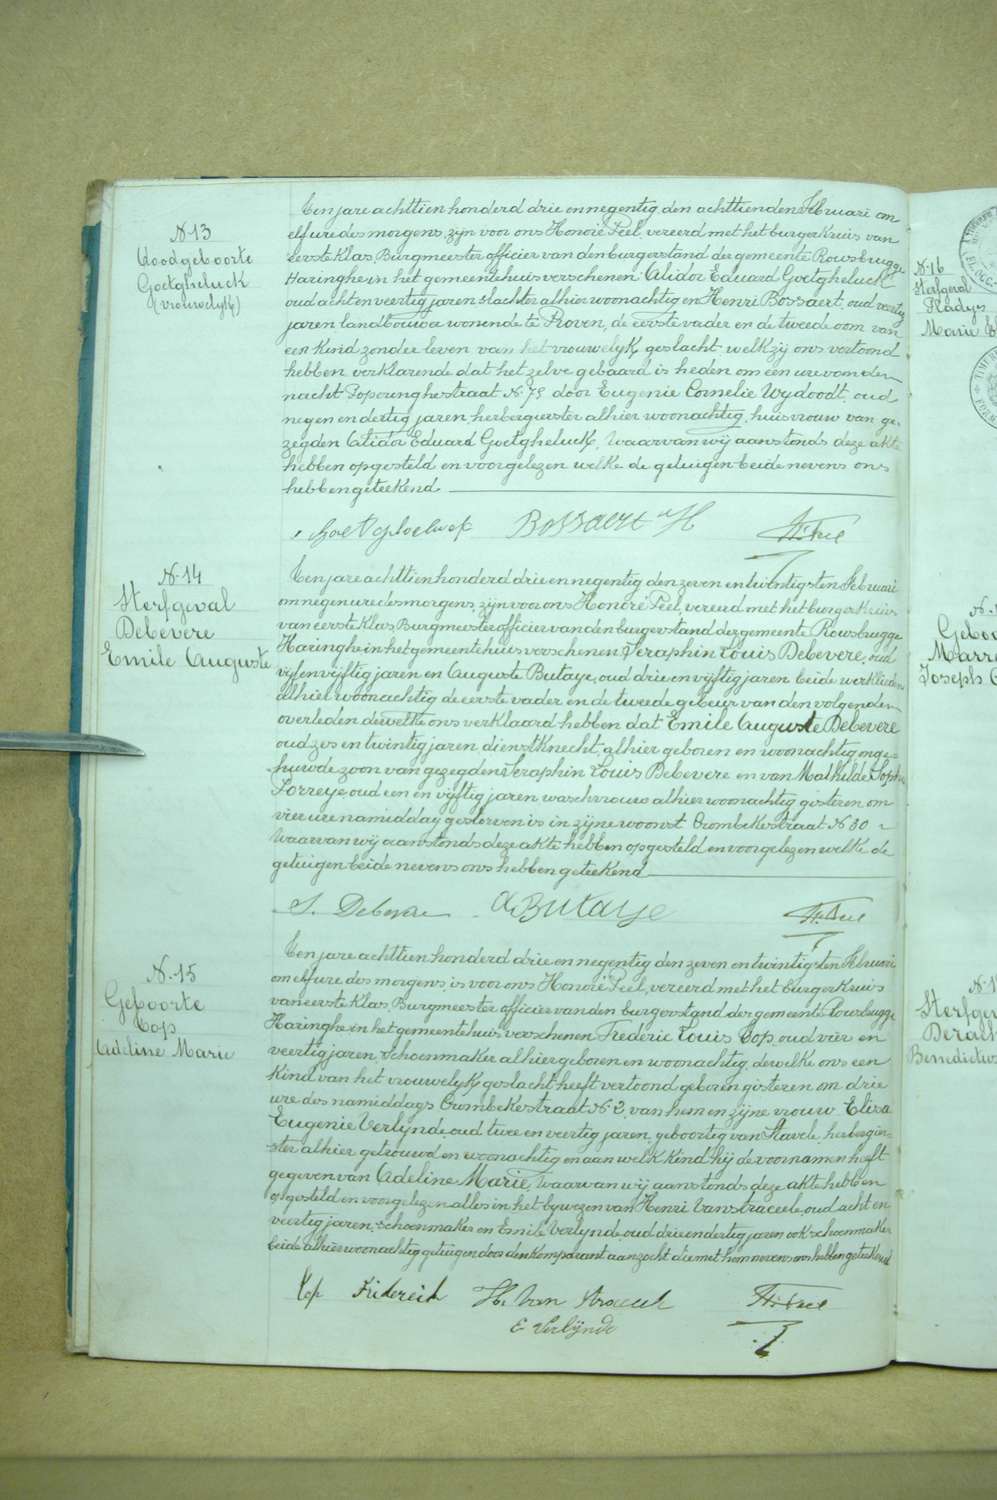 N. 13
Doodgeboorte
Goetgheluck
(vrouwelijk)
Ten jare achttien honderd drie en negentig den achttienden Februari om
elf ure des morgens, zijn voor ons Honoré Peel, vereerd met het burgerkruis van
eerste klas, Burgmeester officier van den burgerstand der gemeente Rousbrugge
Haringhe in het gemeentehuis verschenen Alidor Eduard Goetgheluck
oud acht en veertig jaren slachter alhier woonachtig en Henri Bossaert, oud veertig
jaren landbouwer wonende te Proven, de eerste vader en de tweede oom van
een kind zonder leven van het vrouwelyk geslacht welk zij ons vertoond
hebben verklarende dat het zelve gebaard is heden om een ure van den
nacht Poperinghestraat N. 75 door Eugenie Cornelie Wydoodt, oud
negen en dertig jaren, herbergierster alhier woonachtig, huisvrouw van ge-
zegden Alidor Eduard Goetgheluck, Waarvan wij aanstonds deze akte
hebben opgesteld en voorgelezen welke de getuigen beide nevens ons
hebben geteekend
Goetgheluck Bossaert H H. Peel
N. 14
Sterfgeval
Debevere
Emile Auguste
Ten jare achttien honderd drie en negentig den zeven en twintigsten Februari
om negen ure des morgens, zijn voor ons Honoré Peel, vereerd met het burgerkruis
van eerste klas, Burgmeester officier van den burgerstand der gemeente Rousbrugge
Haringhe in het gemeentehuis verschenen Seraphin Louis Debevere, oud
vijf en vijftig jaren en Auguste Butaye, oud drie en vijftig jaren beide werklieden
alhier woonachtig de eerste vader en de tweede gebuur van den volgenden
overleden dewelke ons verklaard hebben dat Emile Auguste Debevere
oud zes en twintig jaren, dienstknecht, alhier geboren en woonachtig onge-
huwde zoon van gezegden Seraphin Louis Debevere en van Mathilde Sophie
Sorreye oud een en vijftig jaren waschvrouw alhier woonachtig gisteren om
vier ure namiddag gestorven is in zijne woonst Crombekestraat N. 30
Waarvan wij aanstonds deze akte hebben opgesteld en voorgelezen welke de
getuigen beide nevens ons hebben geteekend
S. Debevere A Butaye H. Peel
N. 15
Geboorte
Cop
Adeline Marie
Ten jare achttien honderd drie en negentig den zeven en twintigsten Februari
om elf ure des morgens, is voor ons Honoré Peel, vereerd met het burgerkruis
van eerste klas, Burgmeester officier van den burgerstand der gemeente Rousbrugge
Haringhe in het gemeentehuis verschenen Frederic Louis Cop, oud vier en
veertig jaren, schoenmaker alhier geboren en woonachtig, dewelke ons een
kind van het vrouwelyk geslacht heeft vertoond geboren gisteren om drie
ure des namiddags Crombekestraat N. 2, van hem en zijne vrouw Elisa
Eugenie Verlynde, oud twee en veertig jaren, geboortig van Stavele, herbergier-
ster alhier getrouwd en woonachtig en aan welk kind hij de voornamen heeft
gegeven van Adeline Marie, Waarvan wij aanstonds deze akte hebben
opgesteld en voorgelezen alles in het bywezen van Henri Vanstraceele, oud acht en
veertig jaren, schoenmaker en Emile Verlynde oud drie en dertig jaren ook schoenmaker
beide alhier woonachtig getuigen door den komparant aanzocht die met hem nevens ons hebben geteekend
Cop Fridereik H. Van Straceele H. Peel
E Verlijnde
N. 16
Sterfgeval
Marie
Geboo
Joseph
Sterfge
Benedictus